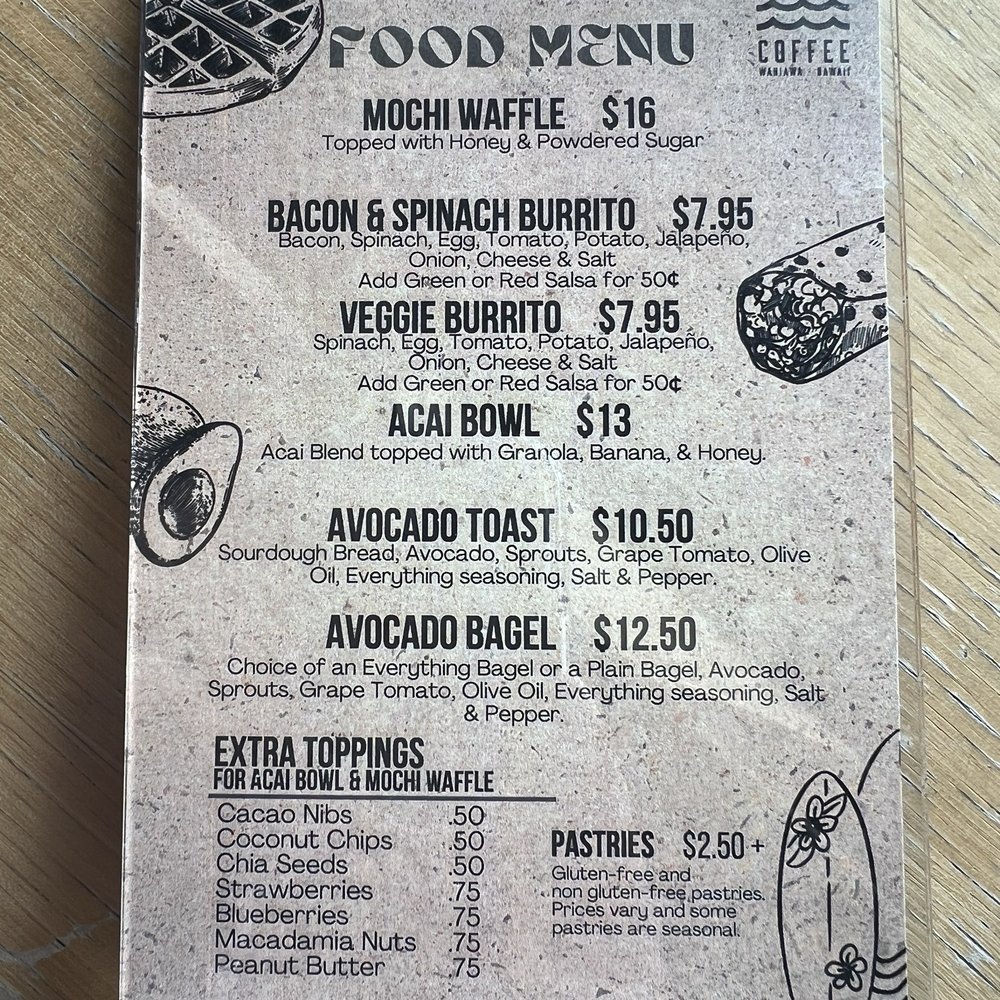 FOOD MENU
COFFEE
WAHIAWA · HAWAII
MOCHI WAFFLE $16
Topped with Honey & Powdered Sugar
BACON & SPINACH BURRITO $7.95
Bacon, Spinach, Egg, Tomato, Potato, Jalapeño,
Onion, Cheese & Salt
Add Green or Red Salsa for 50¢
VEGGIE BURRITO $7.95
Spinach, Egg, Tomato, Potato, Jalapeño,
Onion, Cheese & Salt
Add Green or Red Salsa for 50¢
ACAI BOWL $13
Acai Blend topped with Granola, Banana, & Honey.
AVOCADO TOAST $10.50
Sourdough Bread, Avocado, Sprouts, Grape Tomato, Olive
Oil, Everything seasoning, Salt & Pepper.
AVOCADO BAGEL $12.50
Choice of an Everything Bagel or a Plain Bagel, Avocado,
Sprouts, Grape Tomato, Olive Oil, Everything seasoning, Salt
& Pepper.
EXTRA TOPPINGS
FOR ACAI BOWL & MOCHI WAFFLE
Cacao Nibs .50
Coconut Chips .50
Chia Seeds .50
Strawberries .75
Blueberries .75
Macadamia Nuts .75
Peanut Butter .75
PASTRIES $2.50 +
Gluten-free and
non gluten-free pastries.
Prices vary and some
pastries are seasonal.